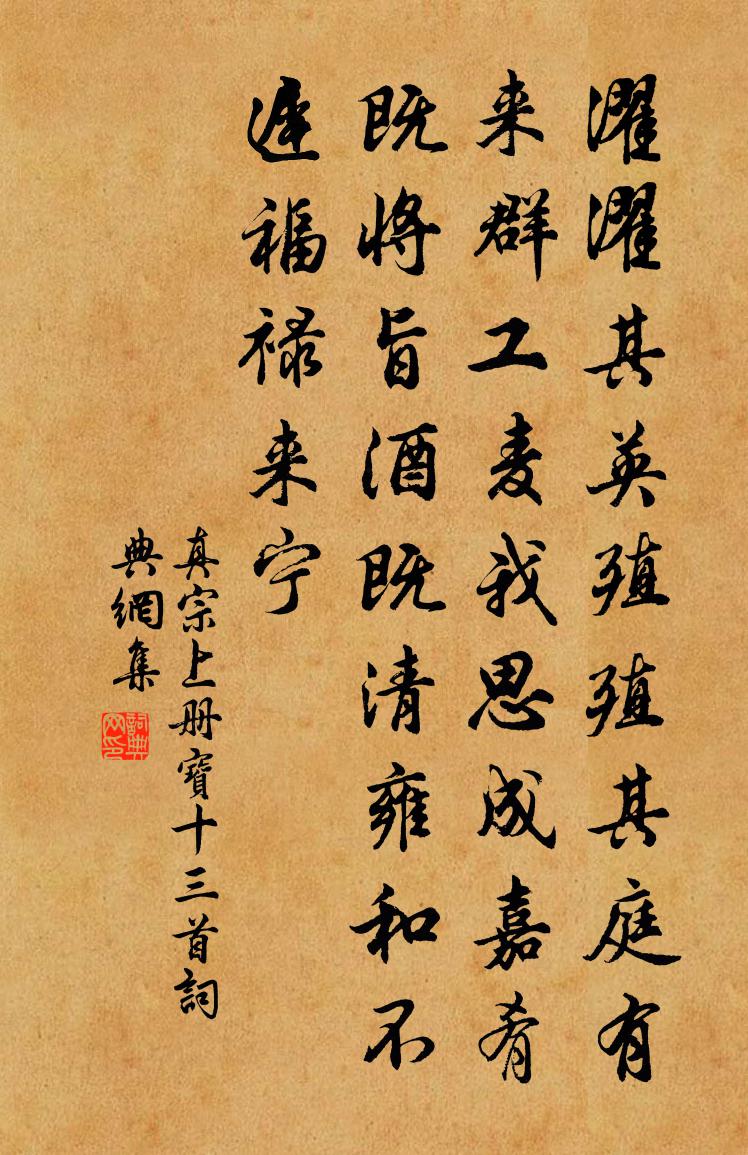 濯濯其英殖殖其庭有
来群工麦我思成嘉肴
既将旨酒既清雍和不
遅福禄来宁
真宗上册寶十三首詞
典網集
詞典网印